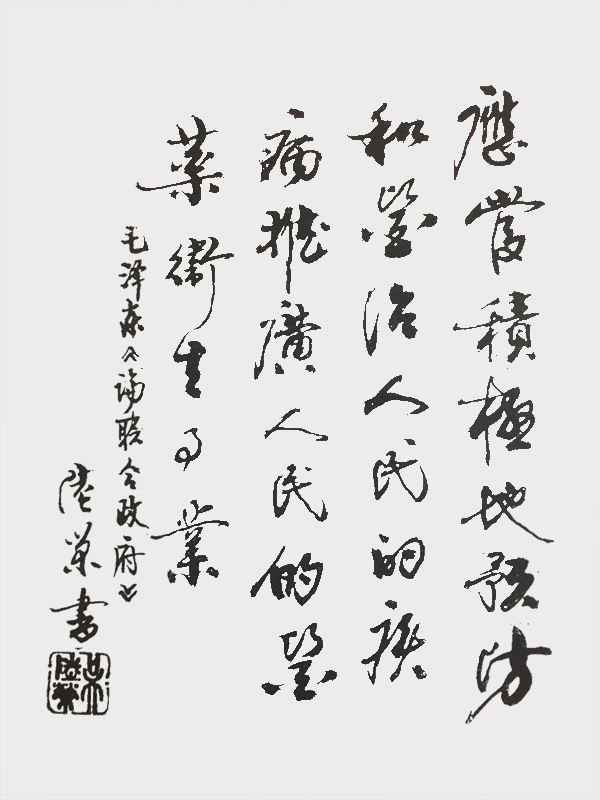 應當積極地預防
和醫治人民的疾
病推廣人民的醫
藥衛生事業
毛泽东《論联合政府》
陸荣書